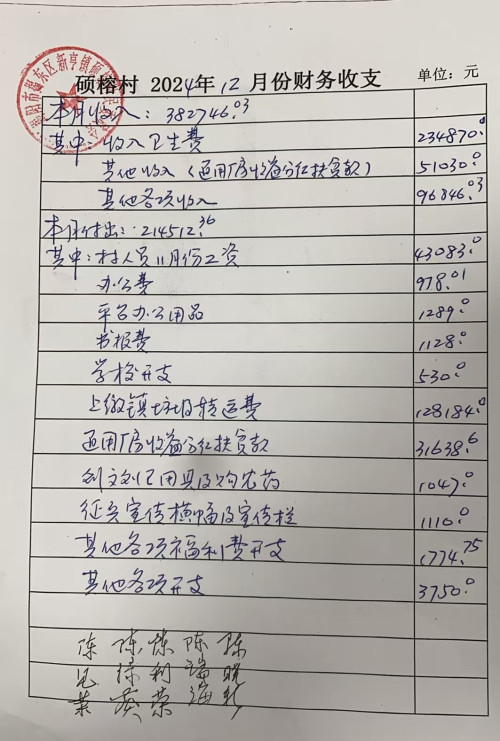 硕榕村 2024年12月份财务收支 单位：元
本月收入：382746.03
其中：收入卫生费 234870.0
其他收入（通用厂房收益分红扶贫款） 51030.0
其他各项收入 96846.03
本月付出：214512.36
其中：村人员11月份工资 43083.0
办公费 978.01
平台办公用品 1289.0
书报费 1128.0
学校开支 530.0
上缴镇垃圾转运费 128184.0
通用厂房收益分红扶贫款 31638.6
用具及购农药 1047.0
征兵宣传横幅及宣传栏 1110.0
其他各项福利费开支 1774.75
其他各项开支 3750.0
陈 陈 陈 陈
利 瑞
荣 海